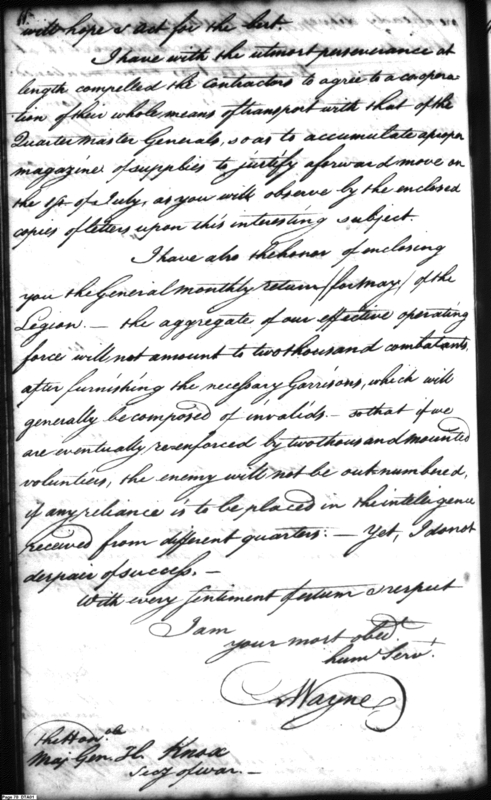 will hope & act for the best.
I have with the utmost perseverance at
length compelled the Contractors to agree to a coopera
tion of their whole means of transport with that of the
Quarter Master Generals, so as to accumulate a proper
magazine of supplies to justify a forward move on
the 1st. of July, as you will observe by the enclosed
copies of letters upon this interesting subject.
I have also the honor of enclosing
you the General monthly return /for May/ of the
Legion. — the aggregate of our effective operating
force will not amount to two thousand combatants,
after furnishing the necessary Garrisons, which will
generally be composed of invalids. — so that if we
are eventually re-enforced by two thousand mounted
voluntiers, the enemy will not be out numbered,
if any reliance is to be placed in the inteligence
received from different quarters: — Yet, I do not
despair of success. —
With every sentiment of esteem & respect
I am
your most obedt.
huml Servt.
Wayne
The Honble
Maj. Gen. H. Knox
Secy of War. —